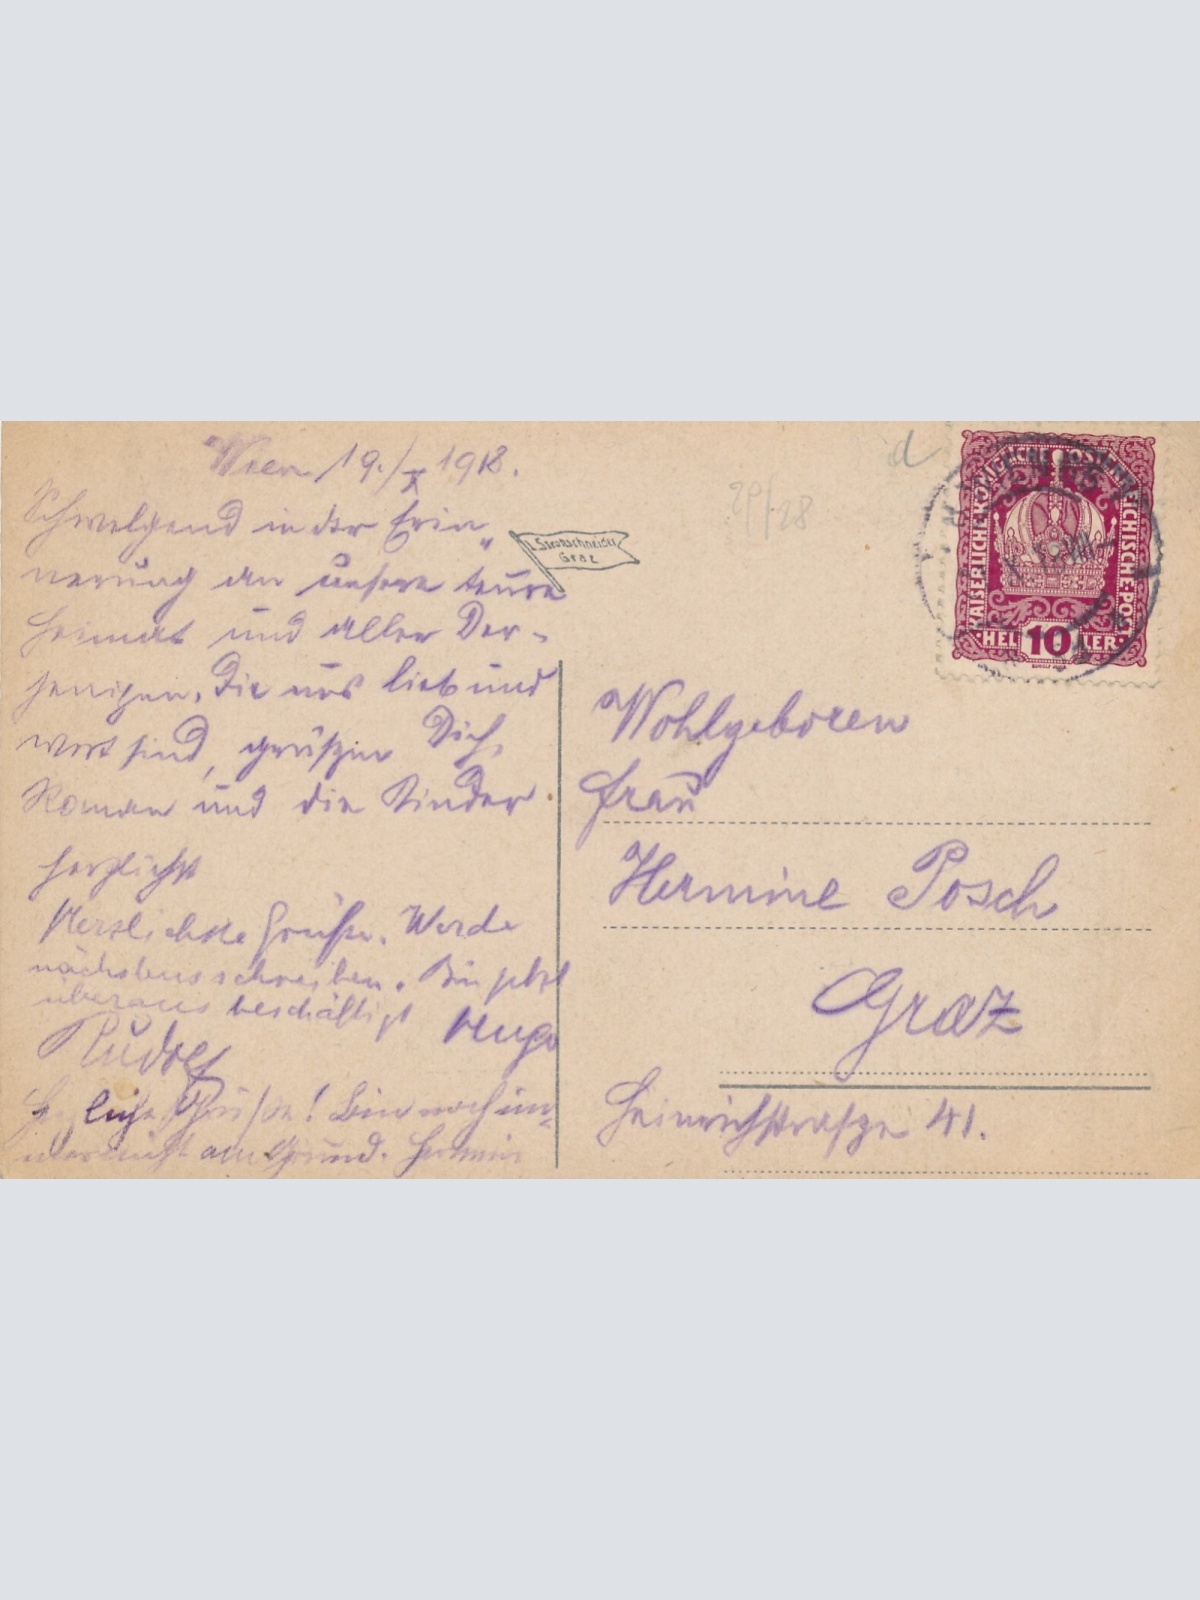 Wien, 19./X 1918.
Schwelgend in der Erin„
nerung an unsere teure
Heimat und aller Der-
jenigen, die uns lieb und
wert sind, grüßen Dich,
Roman und die Kinder
herzlichst
Herzlichste Grüße. Werde
nächstens schreiben. Bin jetzt
überaus beschäftigt Hugo
Rudolf
Herzliche Grüße! Bin noch im-
am Grund.
Strohschneider
Graz
d
29/28
KAISERLICHE KÖNIGLICHE ÖSTERREICHISCHE POST
HEL 10 LER
Wohlgeboren
Frau
Hermine Posch
Graz
Heinrichstraße 41.